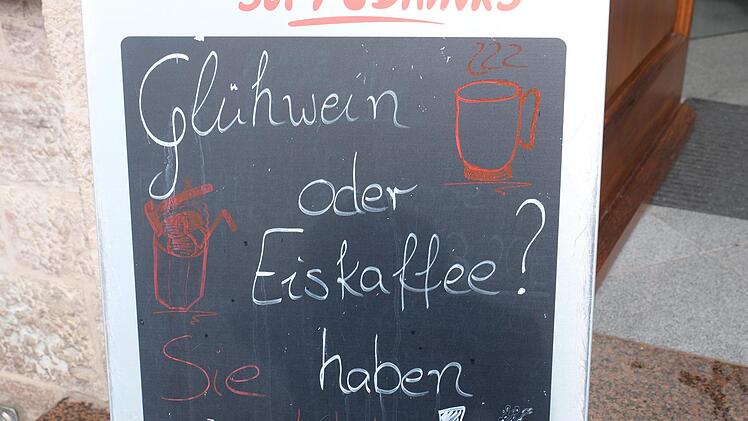 Glühwein
oder
Eiskaffee?
Sie haben